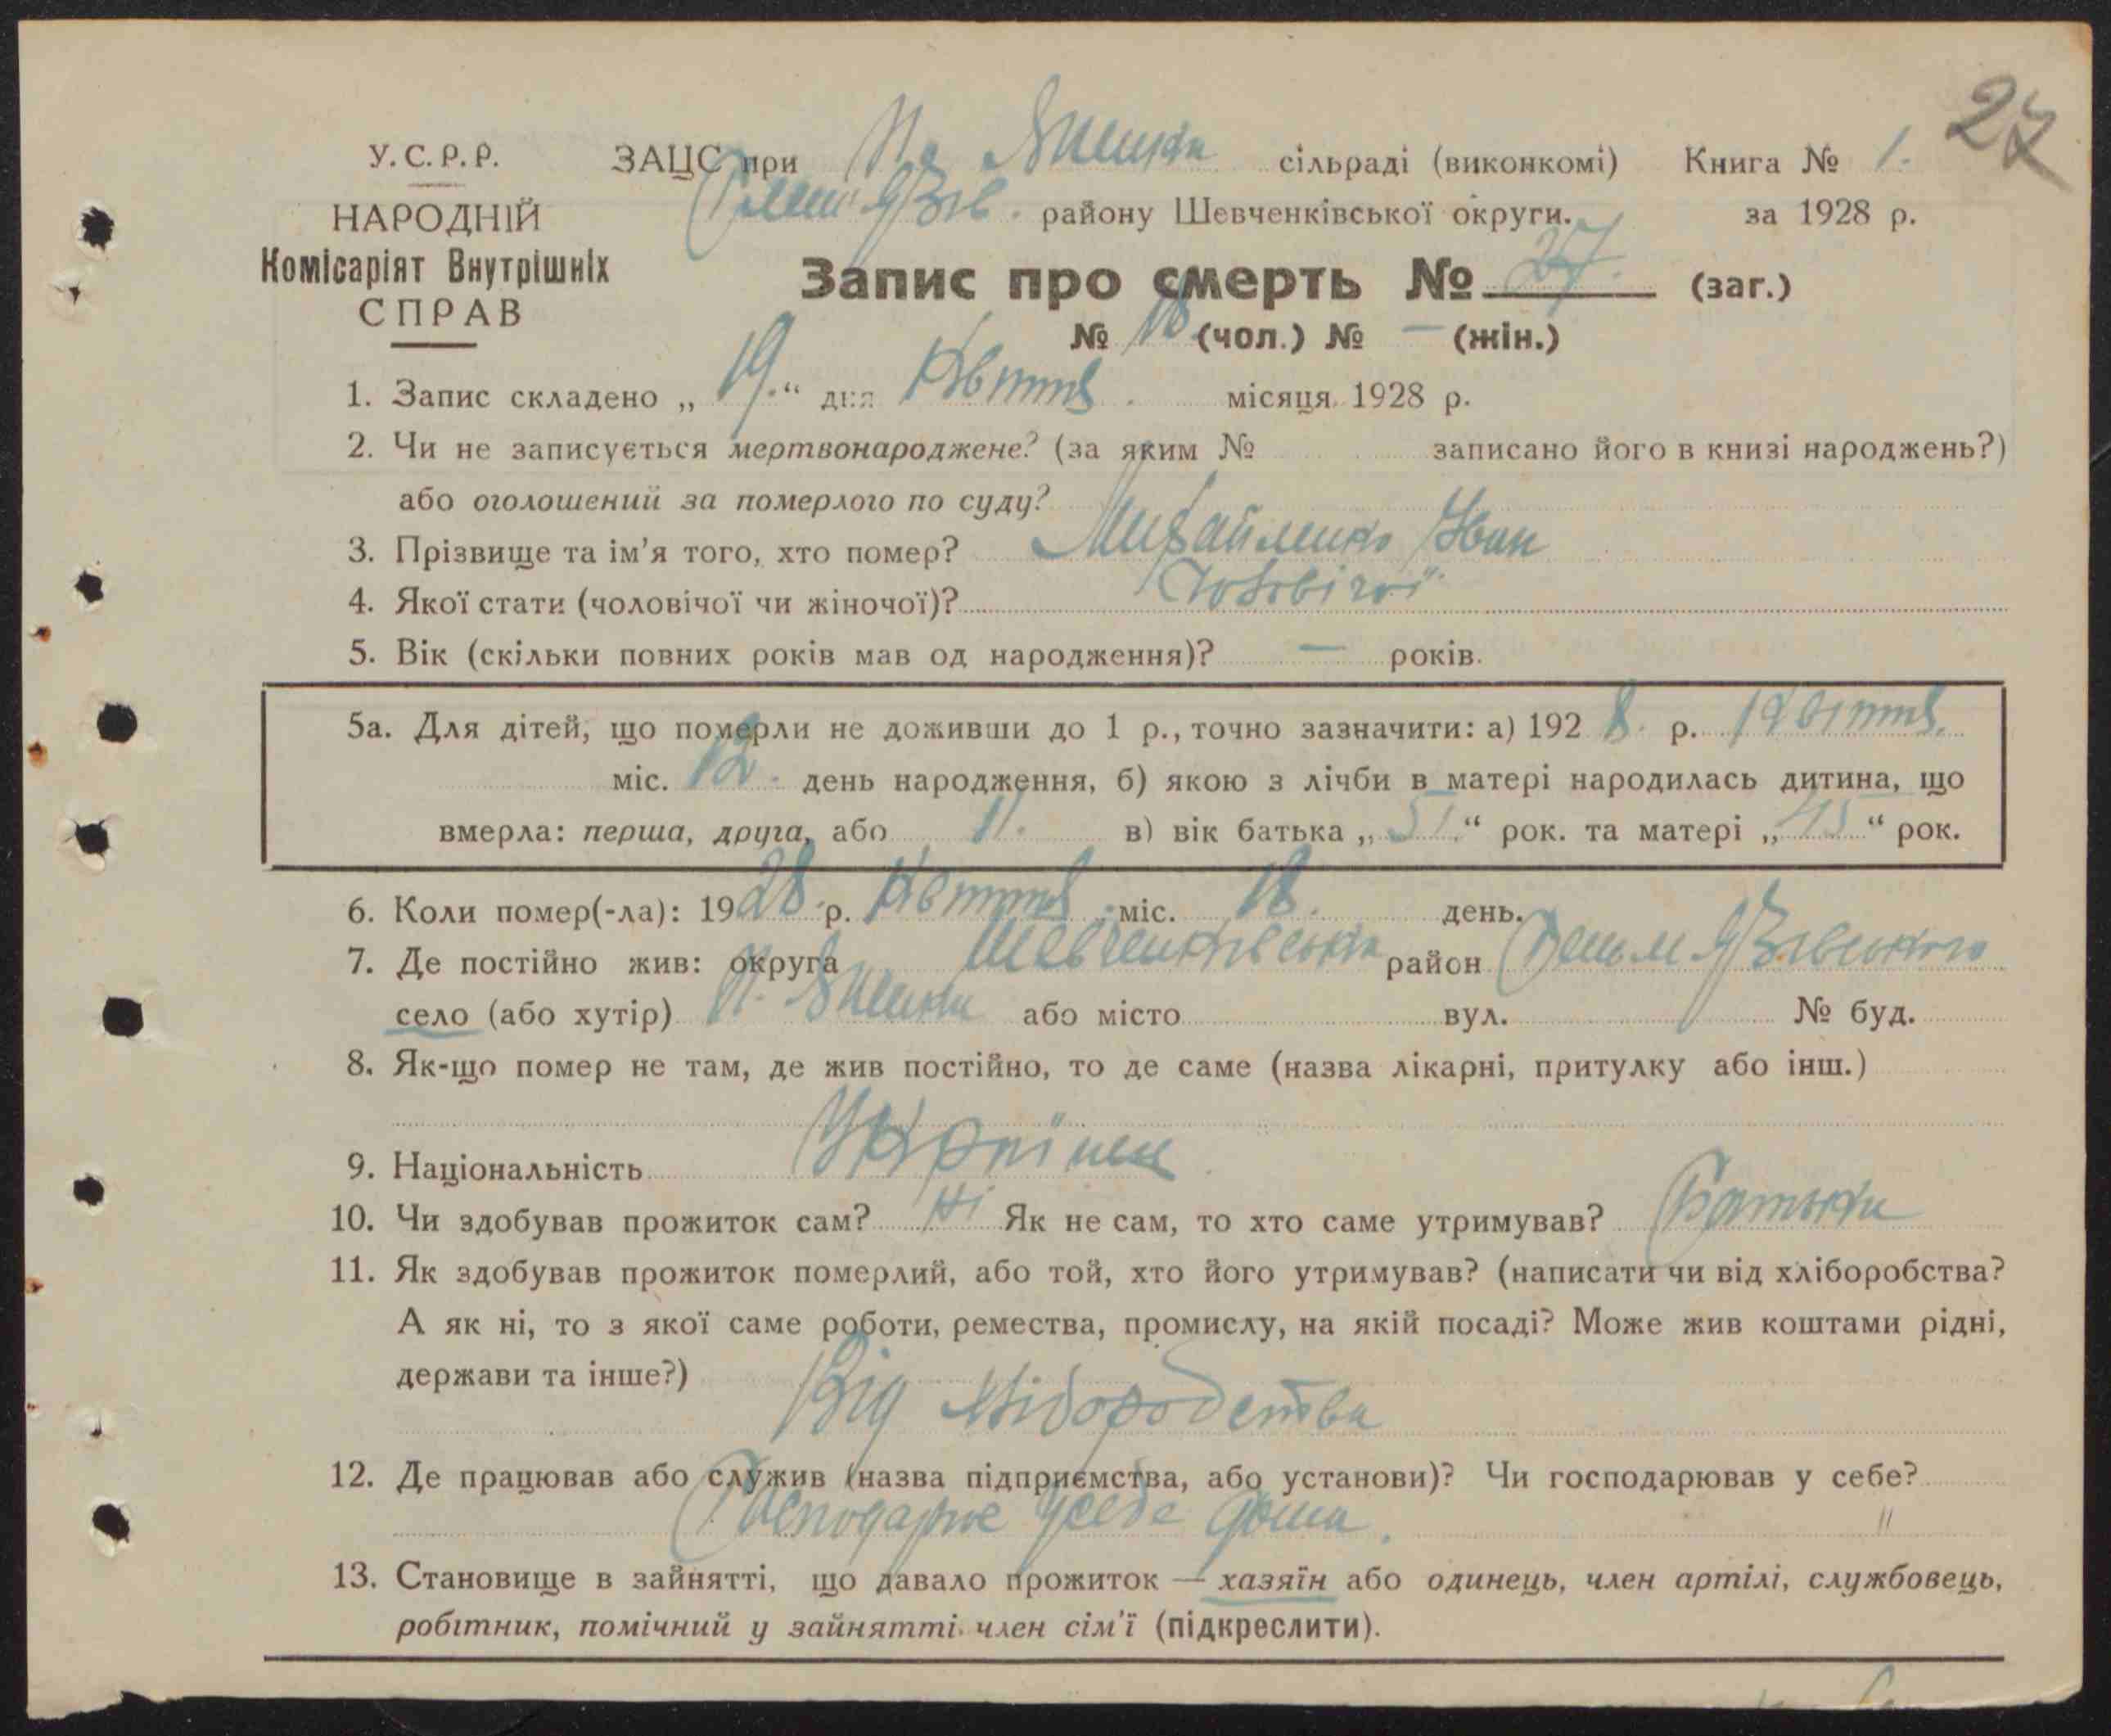 27
У.С.Р.Р. ЗАЦС при Яшники сільраді (виконкомі) Книга № 1.
НАРОДНІЙ району Шевченківської округи. за 1928 р.
Комісаріят Внутрішніх
СПРАВ
Запис про смерть № 27. (заг.)
№ 18 (чол.) № — (жін.)
1. Запис складено „19.“ дня Квітня місяця 1928 р.
2. Чи не записується мертвонароджене? (за яким № записано його в книзі народжень?)
або оголошений за померлого по суду?
3. Прізвище та ім'я того, хто помер? Михайленко Іван
4. Якої стати (чоловічої чи жіночої)? Чоловічої
5. Вік (скільки повних років мав од народження)? — років.
5а. Для дітей, що померли не доживши до 1 р., точно зазначити: а) 1928. р. Квітня.
міс. 12. день народження, б) якою з лічби в матері народилась дитина, що
вмерла: перша, друга, або 11. в) вік батька „51.“ рок. та матері „45“ рок.
6. Коли помер(-ла): 1928. р. Квітня міс. 18. день.
7. Де постійно жив: округа Шевченківська район Гельмязівського
село (або хутір) або місто вул. № буд.
8. Як-що помер не там, де жив постійно, то де саме (назва лікарні, притулку або інш.)
9. Національність Українец
10. Чи здобував прожиток сам? Ні Як не сам, то хто саме утримував? Батьки
11. Як здобував прожиток померлий, або той, хто його утримував? (написати чи від хліборобства?
А як ні, то з якої саме роботи, ремества, промислу, на якій посаді? Може жив коштами рідні,
держави та інше?)
Від хліборобства
12. Де працював або служив (назва підприємства, або установи)? Чи господарював у себе?
Господарює у себе дома. "
13. Становище в зайнятті, що давало прожиток — хазяїн або одинець, член артілі, службовець,
робітник, помічний у зайнятті член сім'ї (підкреслити).